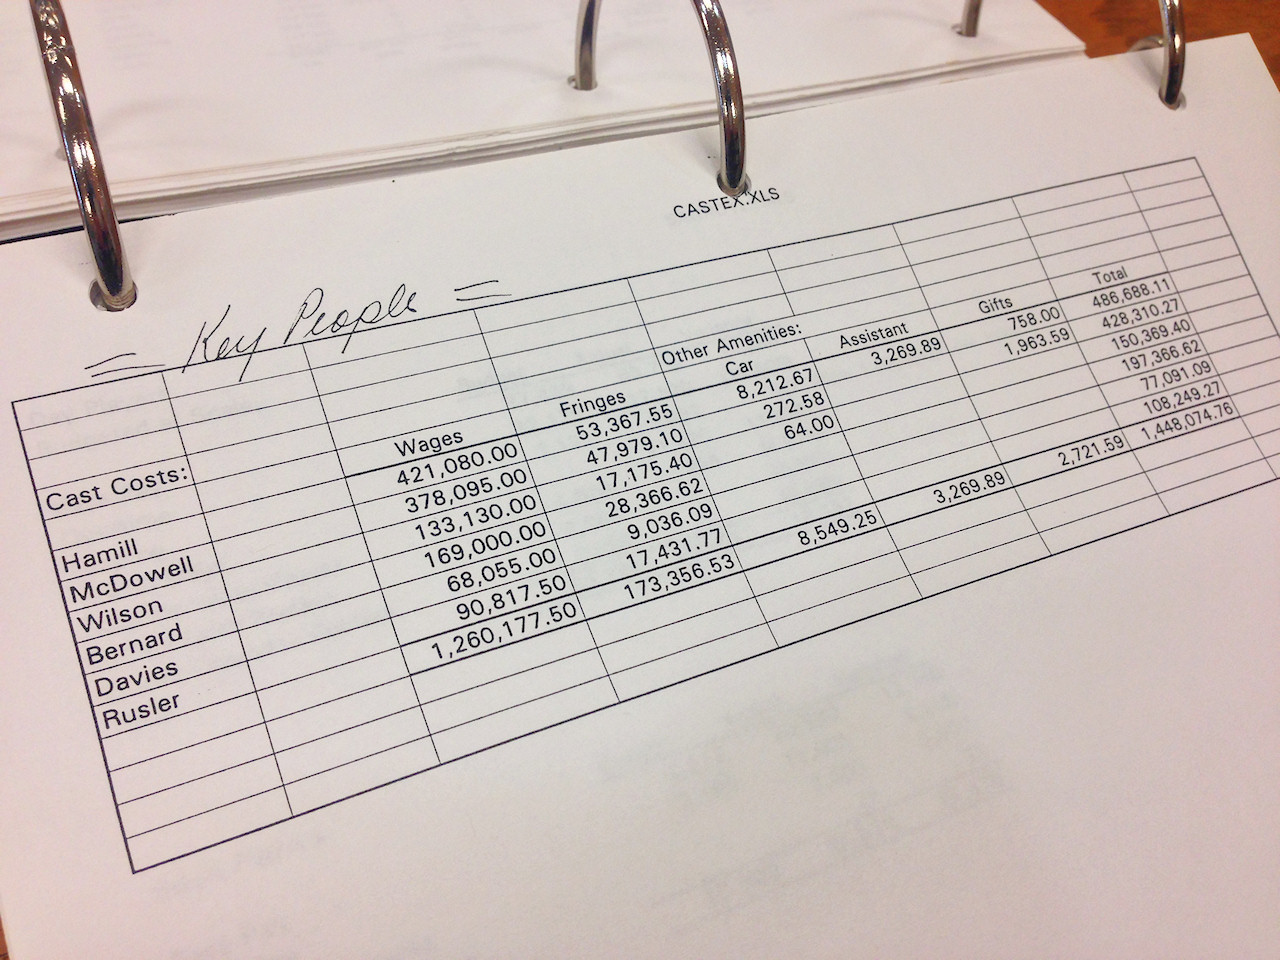 CASTEX.XLS
= Key People =
Other Amenities:
Cast Costs: Wages Fringes Car Assistant Gifts Total
Hamill 421,080.00 53,367.55 8,212.67 3,269.89 758.00 486,688.11
McDowell 378,095.00 47,979.10 272.58 1,963.59 428,310.27
Wilson 133,130.00 17,175.40 64.00 150,369.40
Bernard 169,000.00 28,366.62 197,366.62
Davies 68,055.00 9,036.09 77,091.09
Rusler 90,817.50 17,431.77 108,249.27
1,260,177.50 173,356.53 8,549.25 3,269.89 2,721.59 1,448,074.76